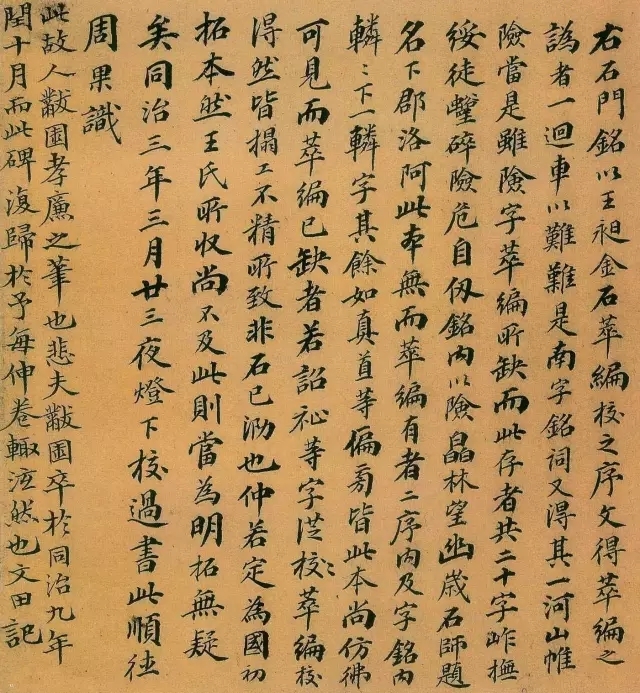 右石門銘以王昶金石萃編校之序文得萃編之
譌者一迴車以難難是南字銘詞又得其一河山帷
險當是雖險字萃編所缺而此存者共二十字岞橅
綏徒螳碎險危自仭銘內以險晶林望幽歲石師題
名下郡洛阿此本無而萃編有者二序內及字銘內
轔〻下一轔字其餘如真首等偏旁皆此本尚仿彿
可見而萃編已缺者若詔祉等字從校〻萃編校
得然皆搨工不精所致非石已泐也仲若定為國初
拓本然王氏所收尚不及此則當為明拓無疑
矣同治三年三月廿三夜燈下校過書此順德
周果識
此故人黻園孝廉之筆也悲夫黻園卒於同治九年
閏十月而此碑復歸於予每伸卷輒泫然也文田記